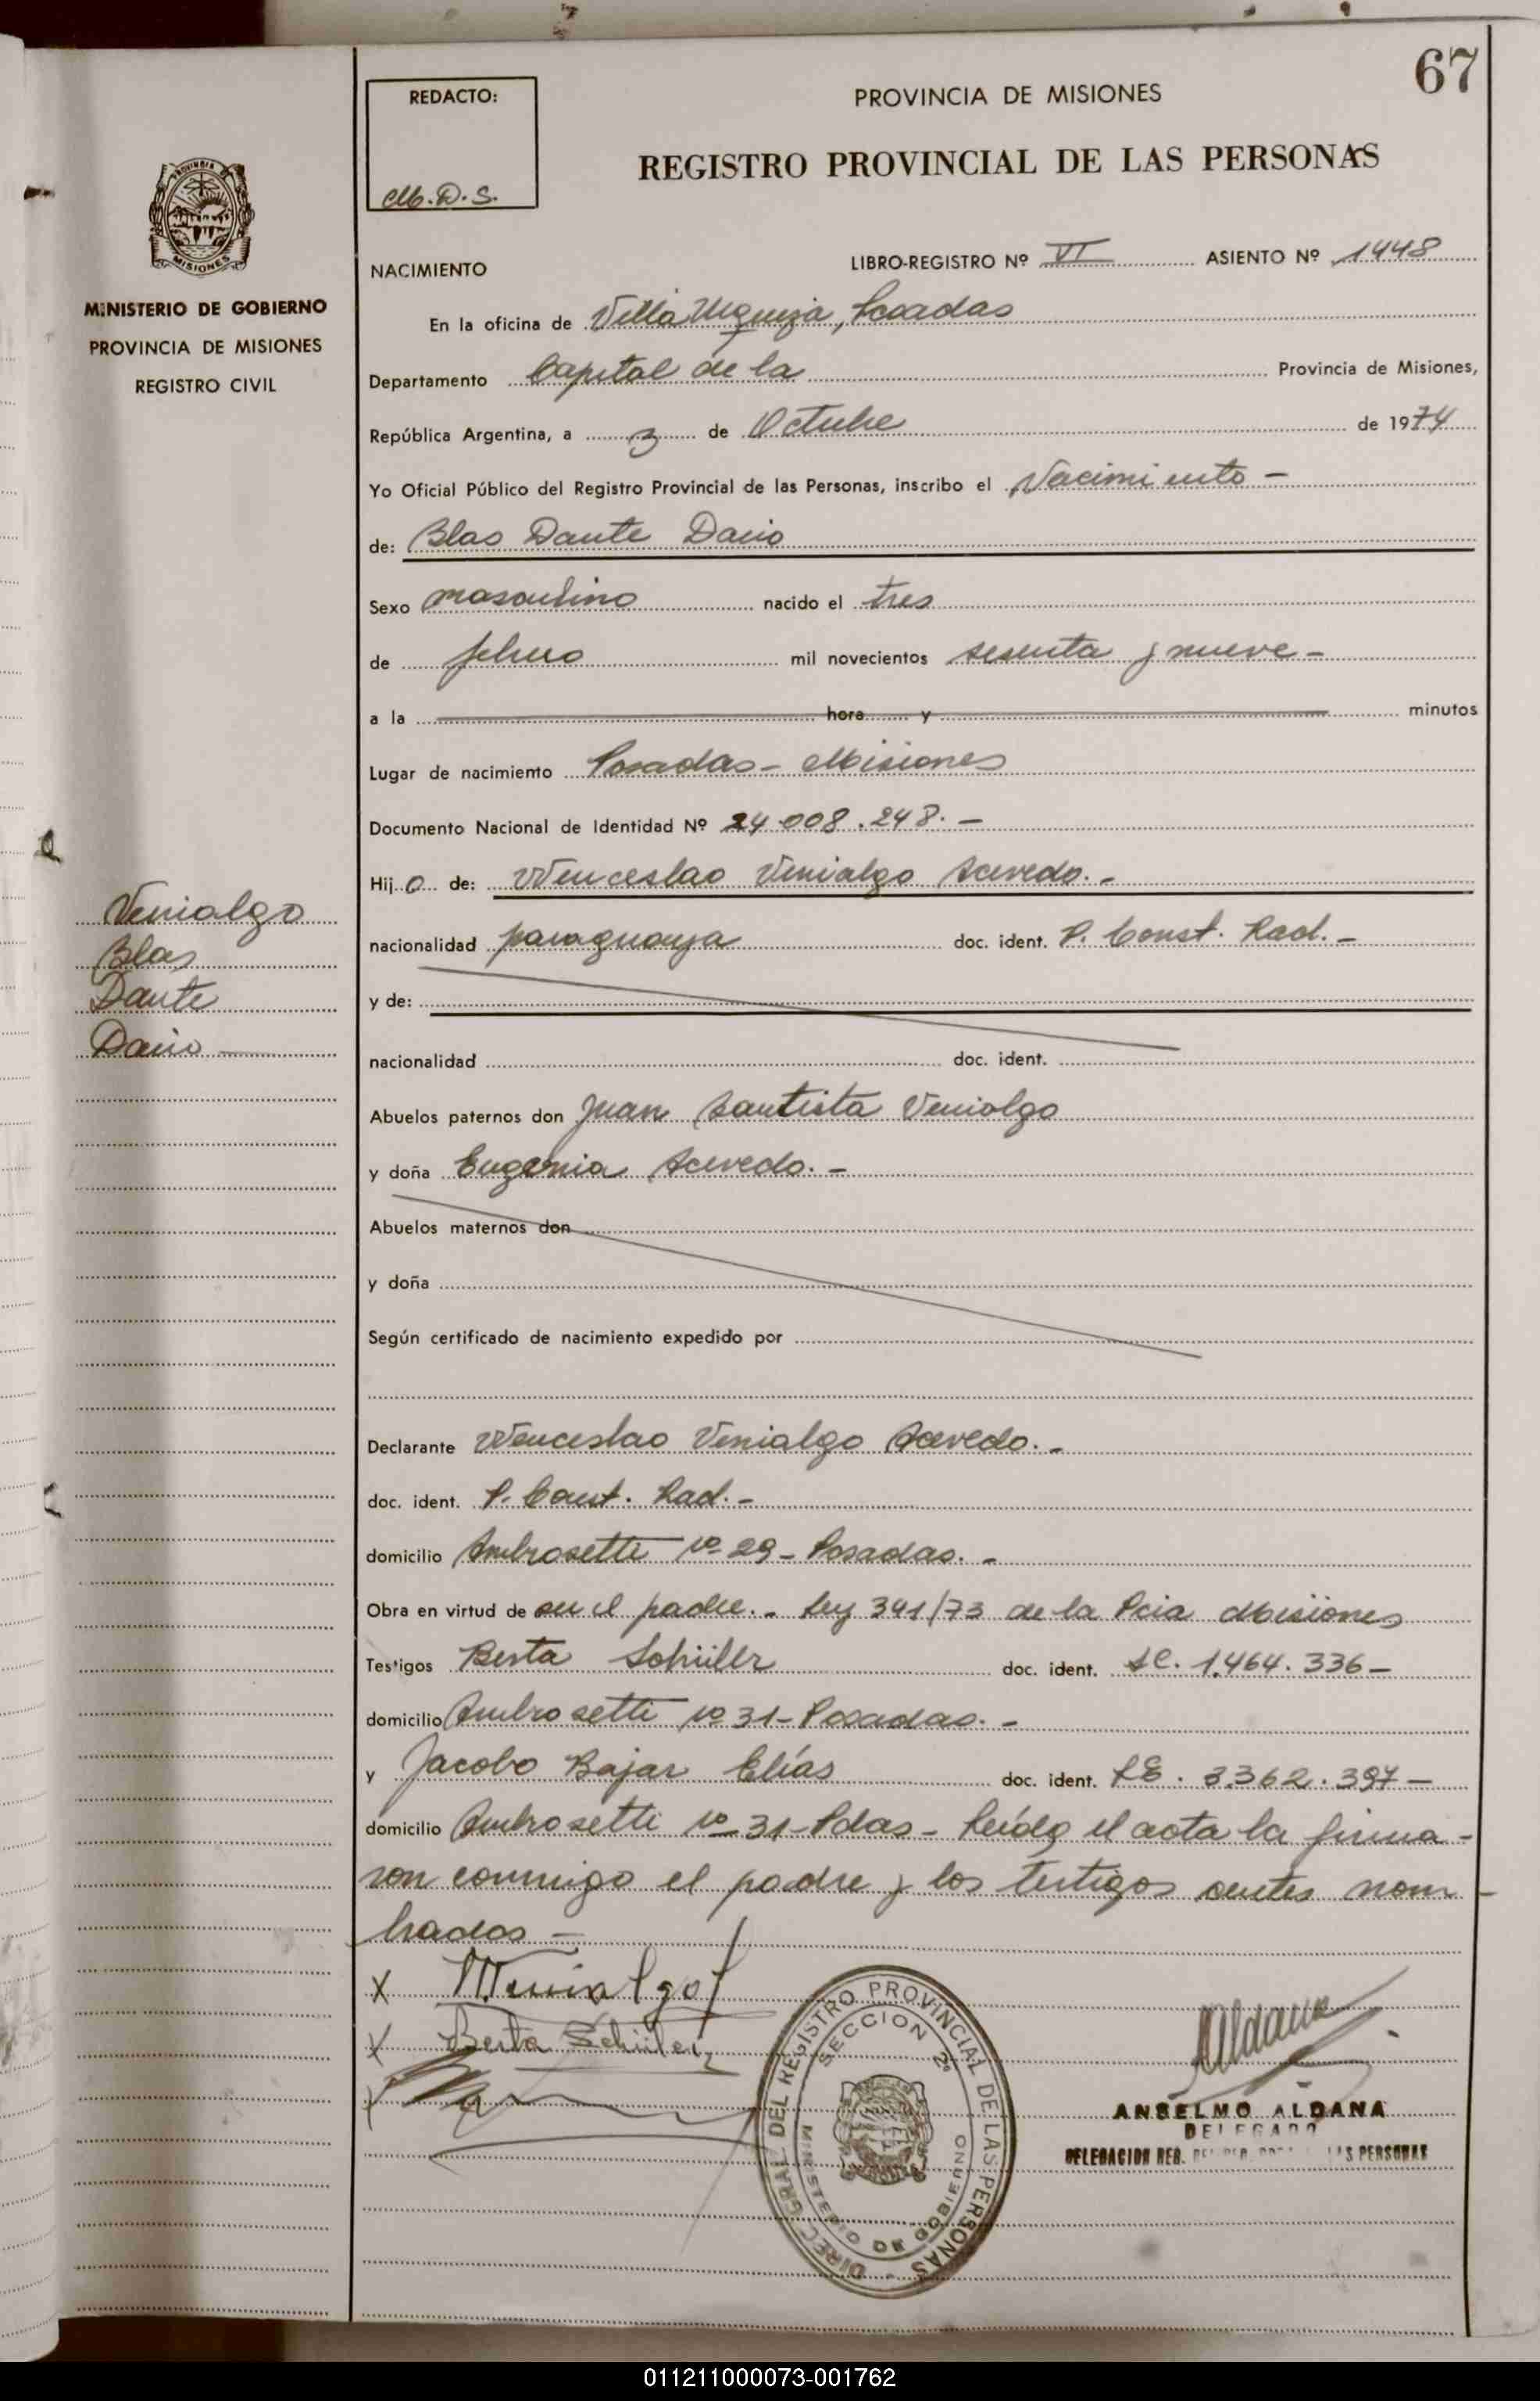 67
REDACTO:
M.D.S.
PROVINCIA DE MISIONES
REGISTRO PROVINCIAL DE LAS PERSONAS
PROVINCIA
MISIONES
MINISTERIO DE GOBIERNO
PROVINCIA DE MISIONES
REGISTRO CIVIL
NACIMIENTO LIBRO-REGISTRO Nº VI ASIENTO Nº 1448
En la oficina de Villa Urquiza, Posadas
Departamento Capital de la Provincia de Misiones,
República Argentina, a 3 de Octubre de 1974
Yo Oficial Público del Registro Provincial de las Personas, inscribo el Nacimiento -
de: Blas Dante Dario
Sexo masculino nacido el tres
de febrero mil novecientos sesenta y nueve -
a la hora y minutos
Lugar de nacimiento Posadas - Misiones
Documento Nacional de Identidad Nº 24.008.248. -
Hij o de: Wenceslao Venialgo Acevedo. -
nacionalidad paraguaya doc. ident. P. Const. Rad. -
y de:
nacionalidad doc. ident.
Abuelos paternos don Juan Bautista Venialgo
y doña Eugenia Acevedo. -
Abuelos maternos don
y doña
Según certificado de nacimiento expedido por
Declarante Wenceslao Venialgo Acevedo. -
doc. ident. P. Const. Rad. -
domicilio Ambrosetti nº 29 - Posadas. -
Obra en virtud de ser el padre. - Ley 341/73 de la Pcia Misiones
Testigos Berta Schüller doc. ident. LC. 1.464.336 -
domicilio Ambrosetti nº 31 - Posadas. -
y Jacobo Bajar Elías doc. ident. LE. 3.362.397 -
domicilio Ambrosetti nº 31 - Pdas - Leída el acta la firma-
ron conmigo el padre y los testigos antes nom-
brados -
Venialgo
Blas
Dante
Dario
X WVenialgo
X Berta Schüler
X
DIREC. GRAL. DEL REGISTRO PROVINCIAL DE LAS PERSONAS
SECCION 2ª
MINISTERIO DE GOBIERNO
Aldana
ANSELMO ALDANA
DELEGADO
DELEGACION REG. LAS PERSONAS
011211000073-001762